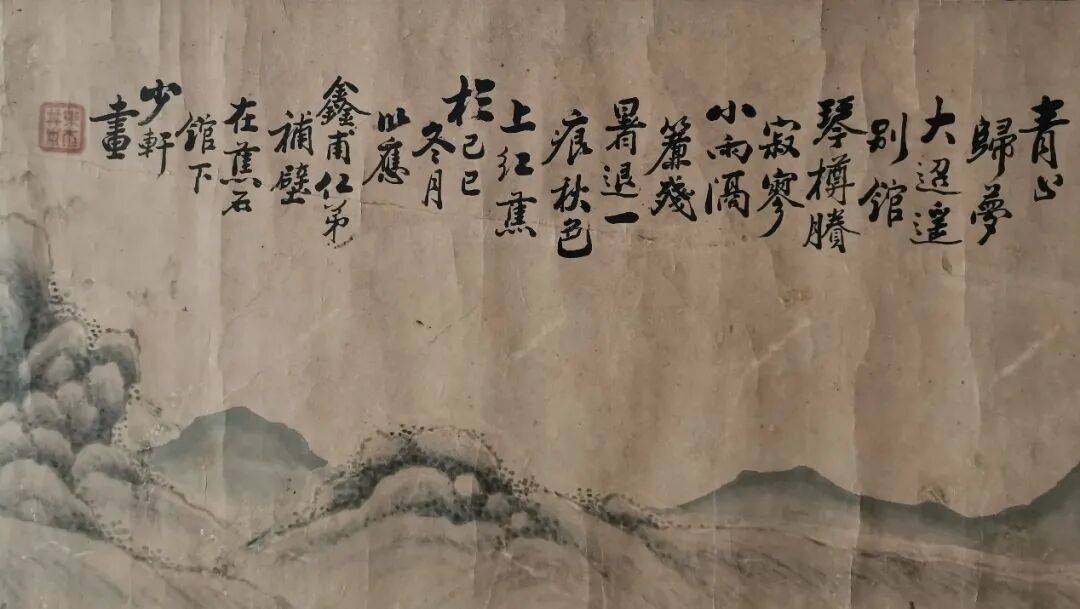 青山
歸夢
大迢遙
別館
琴樽賸
寂寥
小雨隔
簾殘
暑退一
痕秋色
上红蕉
於己巳
冬月
以應
鑫甫仁弟
補壁
在蕉石
館下
少軒
畫